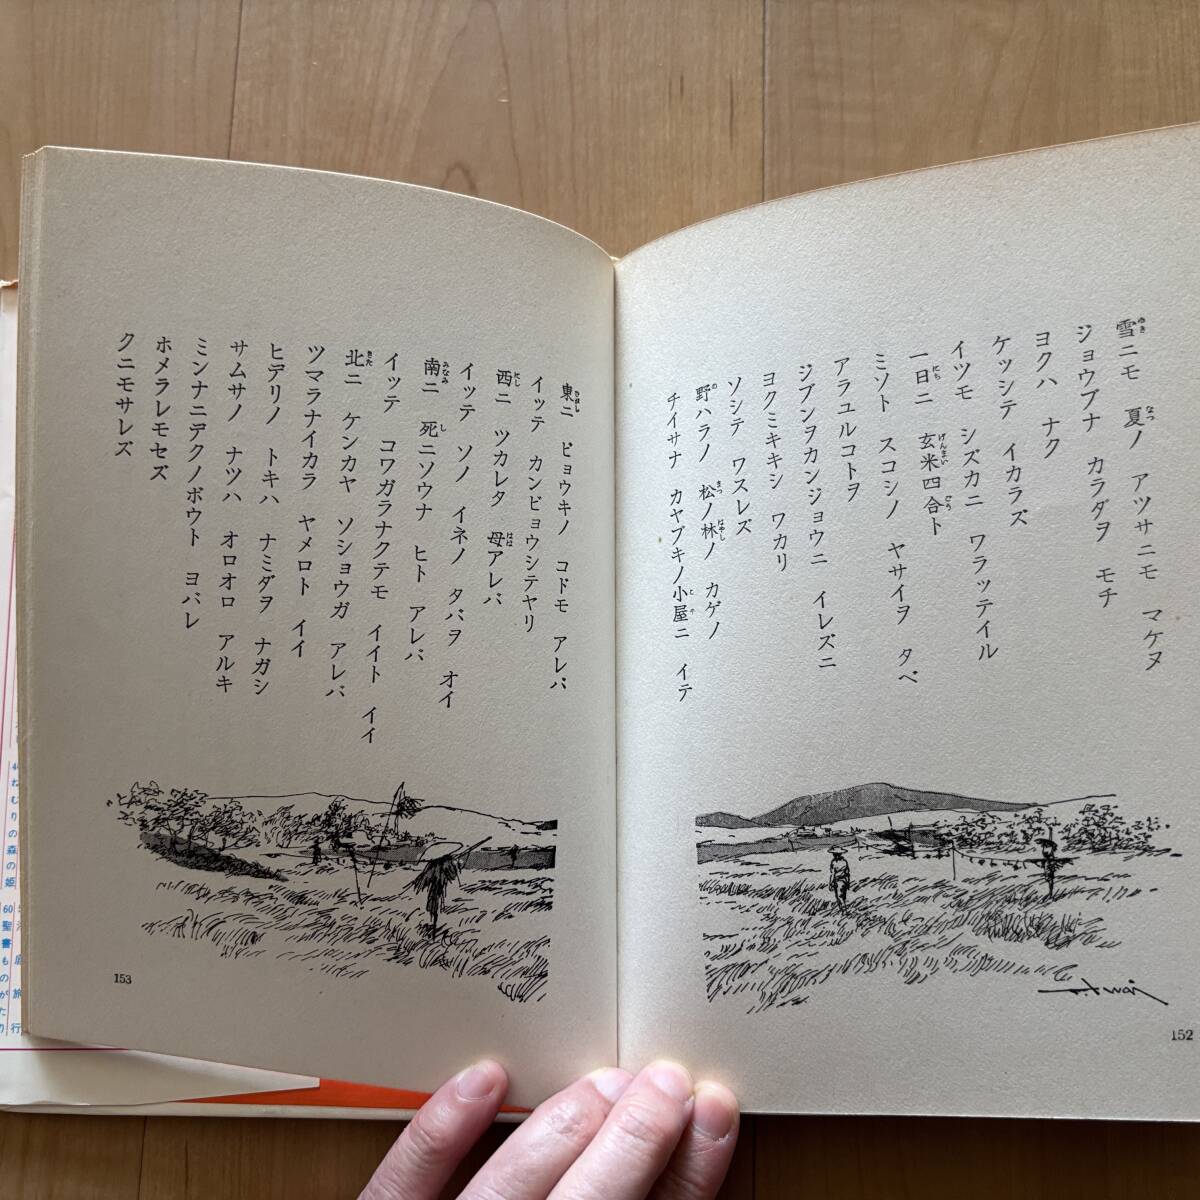 雪ニモ 夏ノ アツサニモ マケヌ
ジョウブナ カラダヲ モチ
ヨクハ ナク
ケッシテ イカラズ
イツモ シズカニ ワラッテイル
一日ニ 玄米四合ト
ミソト スコシノ ヤサイヲ タベ
アラユルコトヲ
ジブンヲカンジョウニ イレズニ
ヨクミキキシ ワカリ
ソシテ ワスレズ
野ハラノ 松ノ林ノ カゲノ
チイサナ カヤブキノ小屋ニ イテ
152
東ニ ビョウキノ コドモ アレバ
イッテ カンビョウシテヤリ
西ニ ツカレタ 母アレバ
イッテ ソノ イネノ タバヲ オイ
南ニ 死ニソウナ ヒト アレバ
イッテ コワガラナクテモ イイト イイ
北ニ ケンカヤ ソショウガ アレバ
ツマラナイカラ ヤメロト イイ
ヒデリノ トキハ ナミダヲ ナガシ
サムサノ ナツハ オロオロ アルキ
ミンナニデクノボウト ヨバレ
ホメラレモセズ
クニモサレズ
153
ねむりの森の姫
底旅行
60 聖書ものがたり